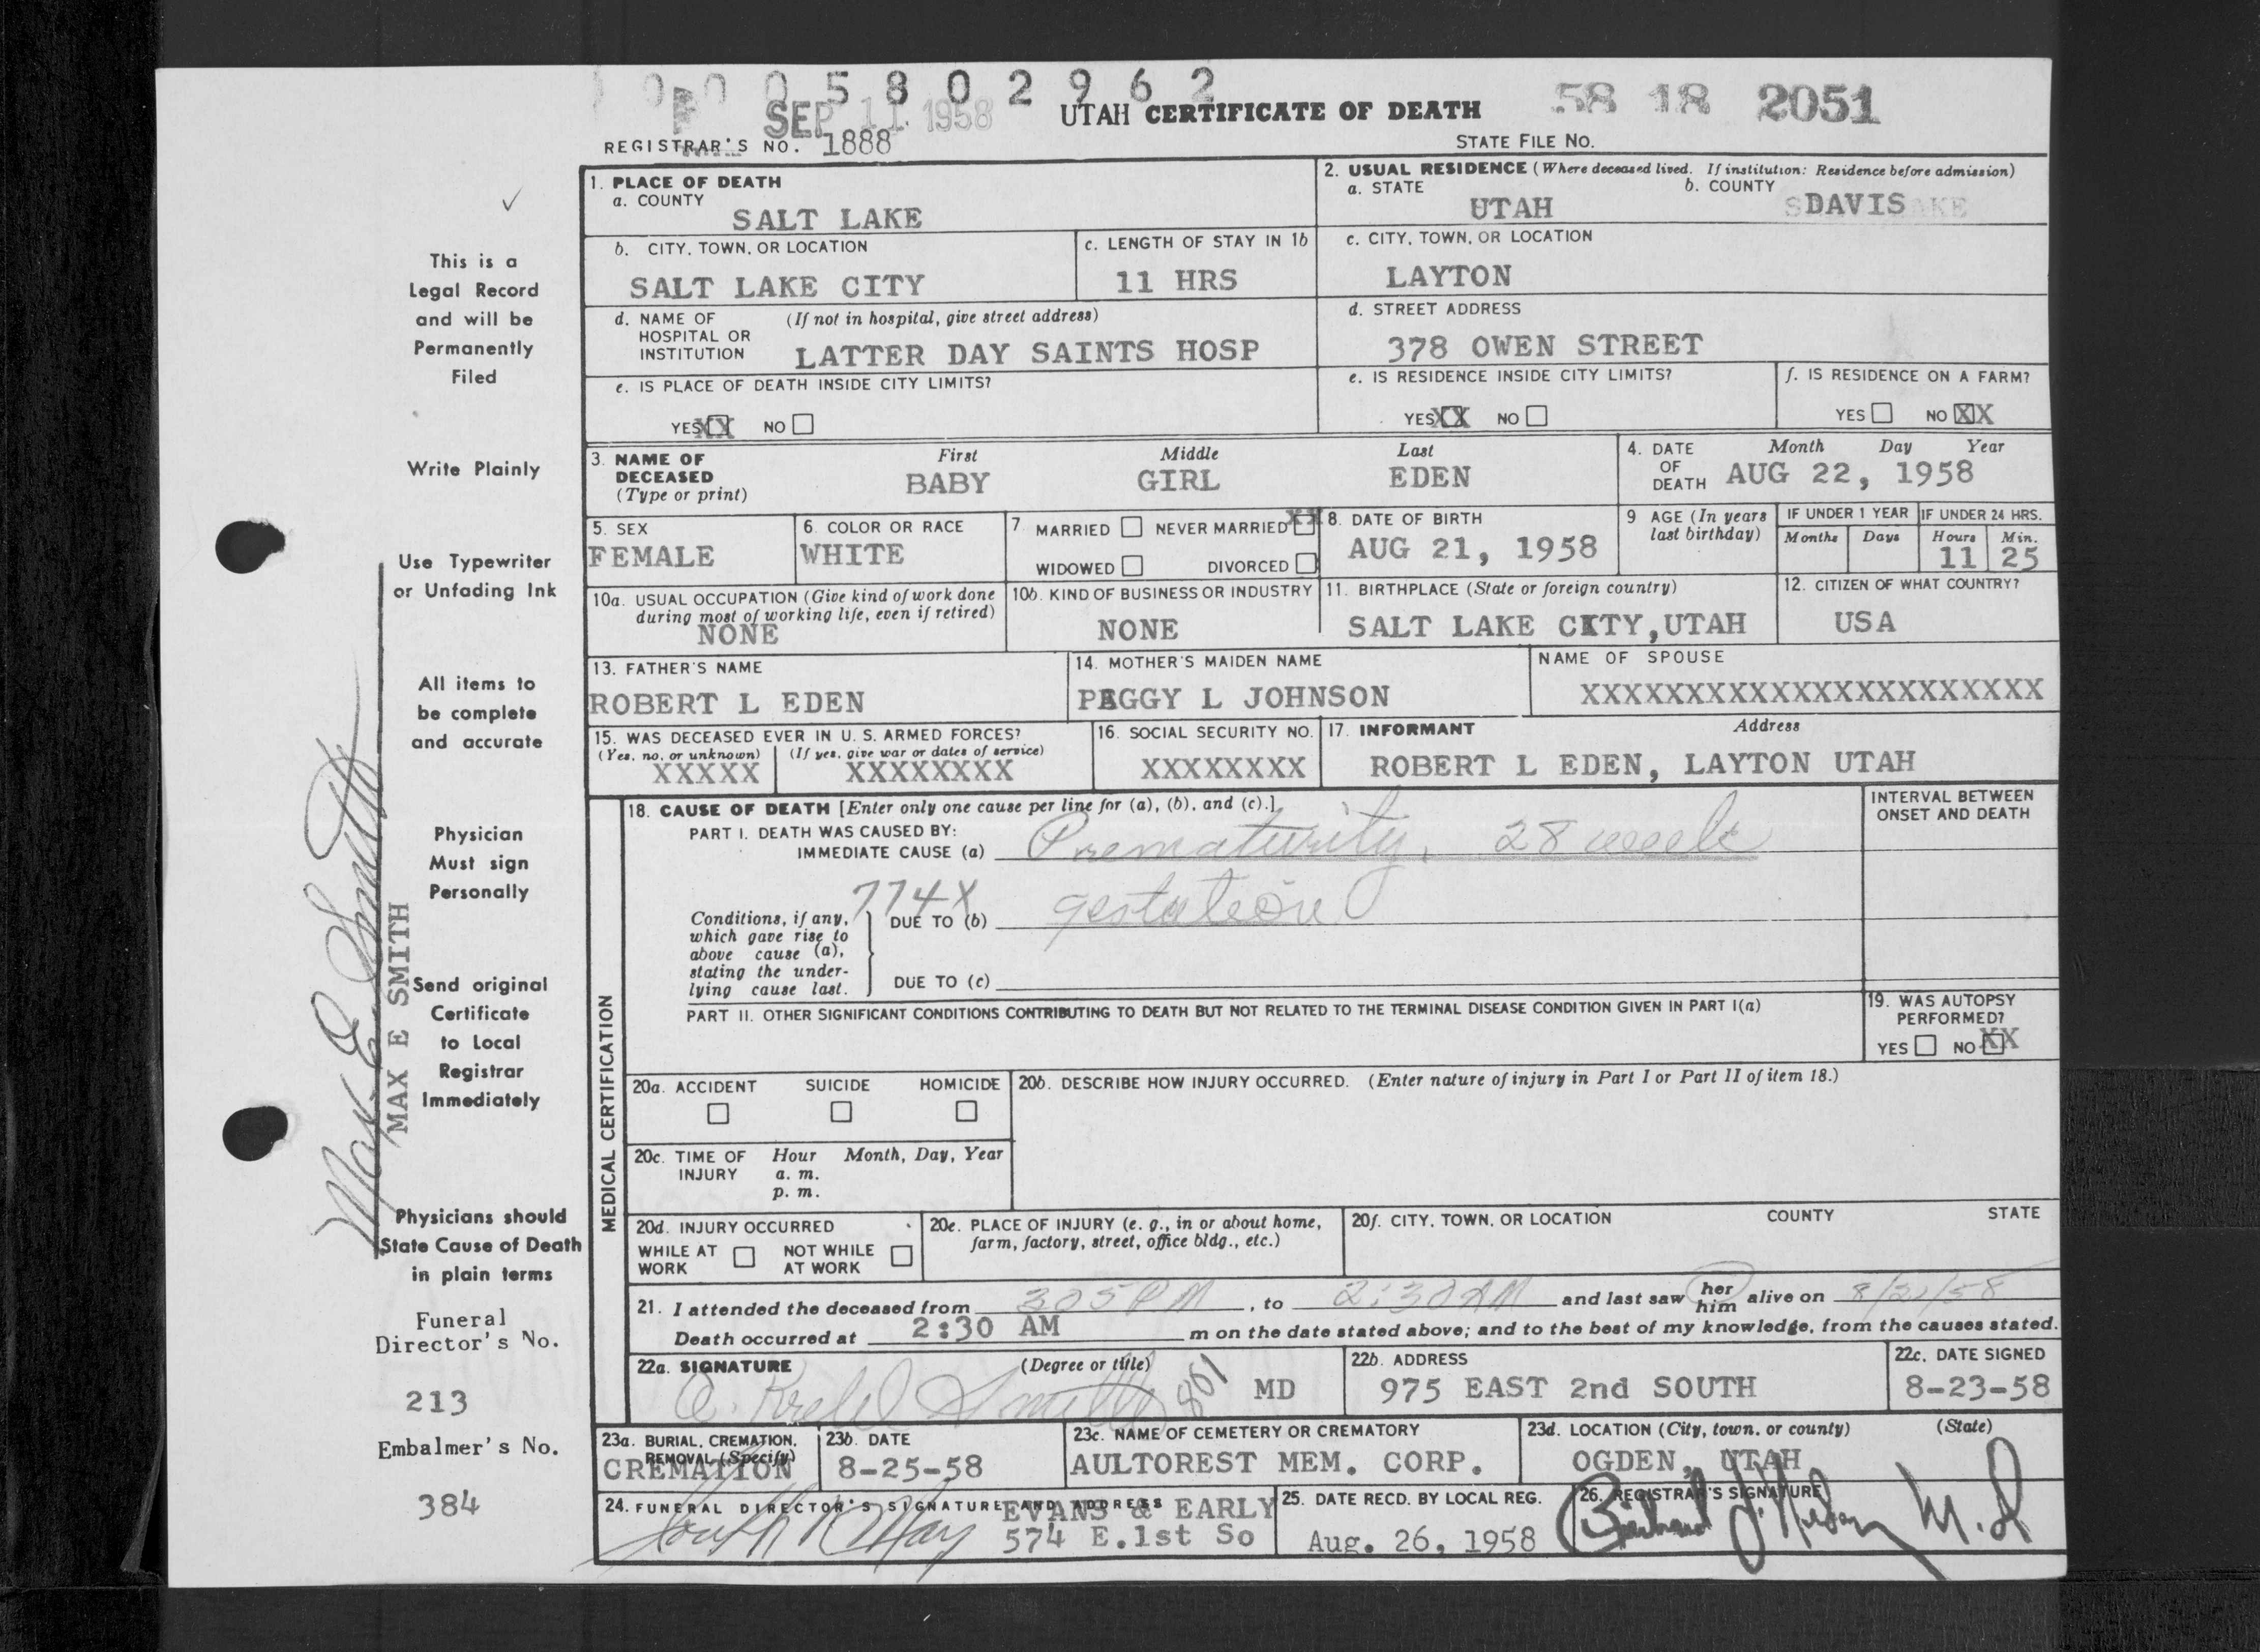 0 0 0 5 8 0 2 9 6 2
SEP 11 1958
UTAH CERTIFICATE OF DEATH
58 18 2051
REGISTRAR'S NO. 1888
STATE FILE NO.
1. PLACE OF DEATH
a. COUNTY
SALT LAKE
2. USUAL RESIDENCE (Where deceased lived. If institution: Residence before admission)
a. STATE
UTAH
b. COUNTY
DAVIS
b. CITY, TOWN, OR LOCATION
SALT LAKE CITY
c. LENGTH OF STAY IN 1b
11 HRS
c. CITY, TOWN, OR LOCATION
LAYTON
d. NAME OF (If not in hospital, give street address)
HOSPITAL OR
INSTITUTION LATTER DAY SAINTS HOSP
d. STREET ADDRESS
378 OWEN STREET
e. IS PLACE OF DEATH INSIDE CITY LIMITS?
YES XX NO
e. IS RESIDENCE INSIDE CITY LIMITS?
YES XX NO
f. IS RESIDENCE ON A FARM?
YES NO XX
3. NAME OF
DECEASED
(Type or print)
First Middle Last
BABY GIRL EDEN
4. DATE
OF
DEATH
Month Day Year
AUG 22, 1958
5. SEX
FEMALE
6. COLOR OR RACE
WHITE
7. MARRIED NEVER MARRIED XX
WIDOWED DIVORCED
8. DATE OF BIRTH
AUG 21, 1958
9 AGE (In years
last birthday)
IF UNDER 1 YEAR
Months Days
IF UNDER 24 HRS.
Hours Min.
11 25
10a. USUAL OCCUPATION (Give kind of work done
during most of working life, even if retired)
NONE
10b. KIND OF BUSINESS OR INDUSTRY
NONE
11. BIRTHPLACE (State or foreign country)
SALT LAKE CITY,UTAH
12. CITIZEN OF WHAT COUNTRY?
USA
13. FATHER'S NAME
ROBERT L EDEN
14. MOTHER'S MAIDEN NAME
PEGGY L JOHNSON
NAME OF SPOUSE
XXXXXXXXXXXXXXXXXXXXXX
15. WAS DECEASED EVER IN U. S. ARMED FORCES?
(Yes, no, or unknown) (If yes, give war or dates of service)
XXXXX XXXXXXXX
16. SOCIAL SECURITY NO.
XXXXXXXX
17. INFORMANT Address
ROBERT L EDEN, LAYTON UTAH
MEDICAL CERTIFICATION
18. CAUSE OF DEATH [Enter only one cause per line for (a), (b), and (c).]
PART I. DEATH WAS CAUSED BY:
IMMEDIATE CAUSE (a) Prematurity, 28 week
774X
Conditions, if any,
which gave rise to
above cause (a),
stating the under-
lying cause last.
DUE TO (b) gestation
DUE TO (c)
INTERVAL BETWEEN
ONSET AND DEATH
PART II. OTHER SIGNIFICANT CONDITIONS CONTRIBUTING TO DEATH BUT NOT RELATED TO THE TERMINAL DISEASE CONDITION GIVEN IN PART I(a)
19. WAS AUTOPSY
PERFORMED?
YES NO XX
20a. ACCIDENT SUICIDE HOMICIDE
20b. DESCRIBE HOW INJURY OCCURRED. (Enter nature of injury in Part I or Part II of item 18.)
20c. TIME OF Hour Month, Day, Year
INJURY a. m.
p. m.
20d. INJURY OCCURRED
WHILE AT NOT WHILE
WORK AT WORK
20e. PLACE OF INJURY (e. g., in or about home,
farm, factory, street, office bldg., etc.)
20f. CITY, TOWN, OR LOCATION COUNTY STATE
21. I attended the deceased from 3:05 PM, to 2:30 AM and last saw her him alive on
Death occurred at 2:30 AM m on the date stated above; and to the best of my knowledge, from the causes stated.
22a. SIGNATURE (Degree or title)
Smith MD
22b. ADDRESS
975 EAST 2nd SOUTH
22c. DATE SIGNED
8-23-58
23a. BURIAL, CREMATION,
REMOVAL (Specify)
CREMATION
23b. DATE
8-25-58
23c. NAME OF CEMETERY OR CREMATORY
AULTOREST MEM. CORP.
23d. LOCATION (City, town, or county) (State)
OGDEN, UTAH
24. FUNERAL DIRECTOR'S SIGNATURE AND ADDRESS
EVANS & EARLY
574 E.1st So
25. DATE RECD. BY LOCAL REG.
Aug. 26, 1958
26. REGISTRAR'S SIGNATURE
M.D
This is a
Legal Record
and will be
Permanently
Filed
Write Plainly
Use Typewriter
or Unfading Ink
All items to
be complete
and accurate
Physician
Must sign
Personally
Send original
Certificate
to Local
Registrar
Immediately
Physicians should
State Cause of Death
in plain terms
Funeral
Director's No.
213
Embalmer's No.
384
Max E. Smith
MAX E SMITH